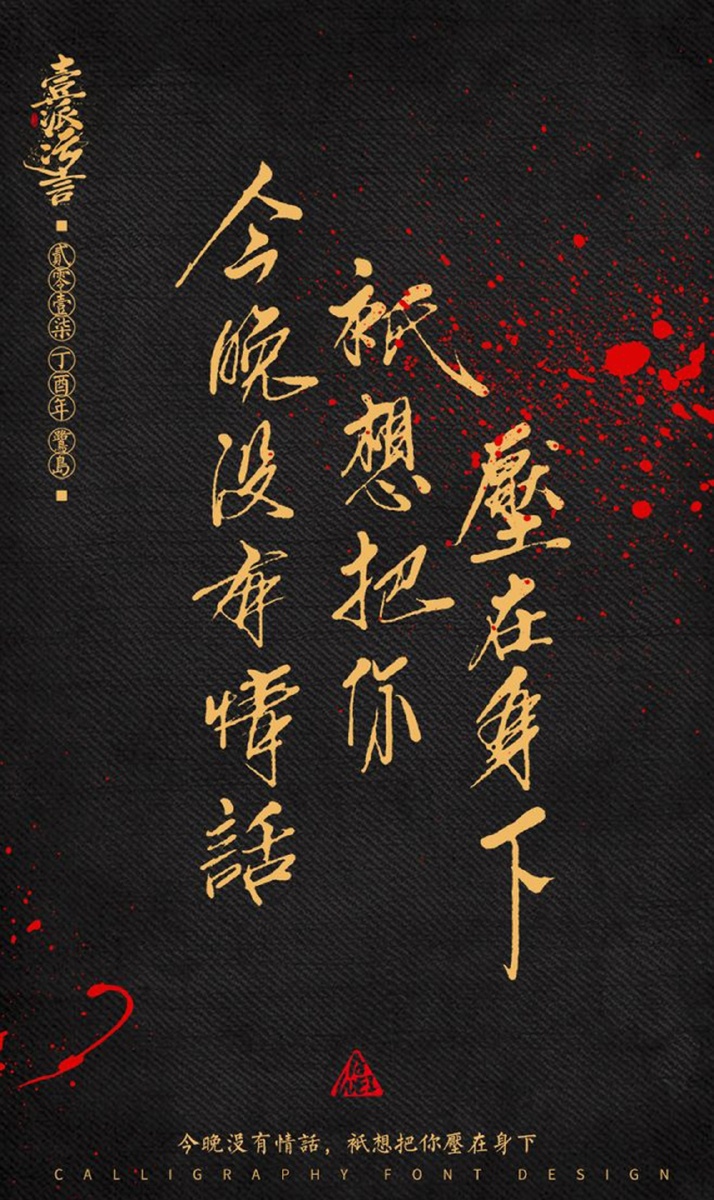 壹派污言
貳零壹柒 丁酉年 鷺島
今晚没有情話
衹想把你
壓在身下
今晚沒有情話，衹想把你壓在身下
CALLIGRAPHY FONT DESIGN